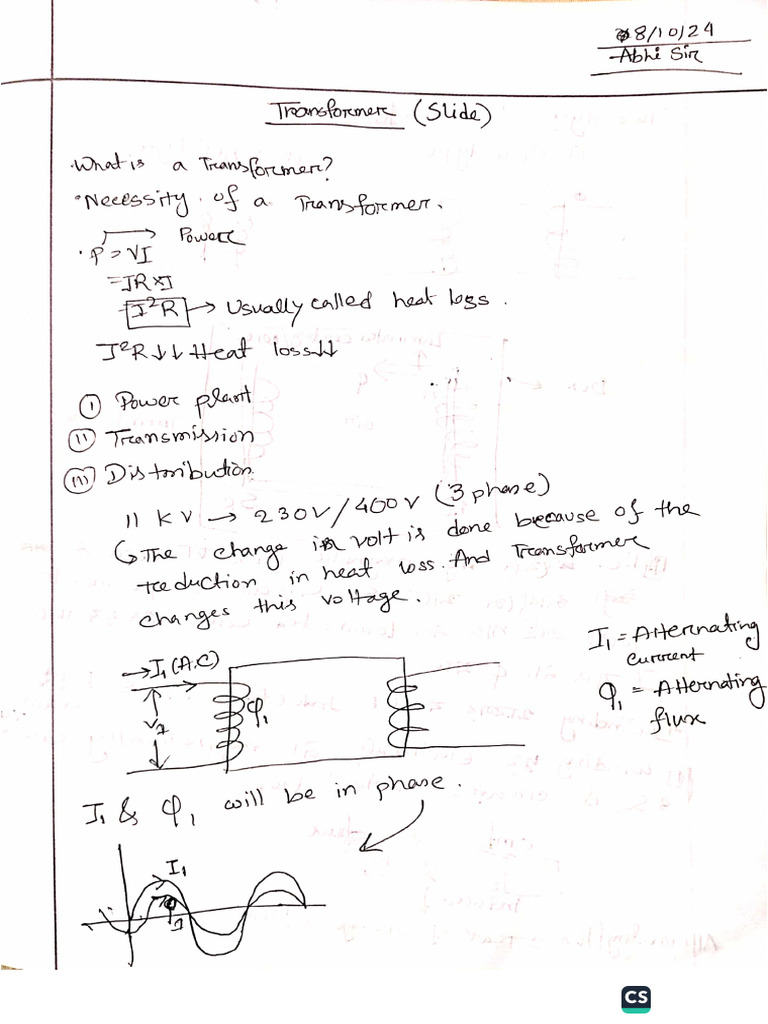 08/10/24
Abhi Sir
Transformer (Slide)
• What is a Transformer?
• Necessity of a Transformer.
• P = VI → Power
= IR × I
= I²R → Usually called heat loss.
I²R↓↓ Heat loss↓↓
(i) Power plant
(ii) Transmission
(iii) Distribution
11 KV → 230V/400V (3 phase)
↳ The change in volt is done because of the
reduction in heat loss. And Transformer
changes this voltage.
→ I₁ (A.C)
V₁
φ₁
I₁ = Alternating
current
φ₁ = Alternating
flux
I₁ & φ₁ will be in phase.
I₁
φ₁
CS